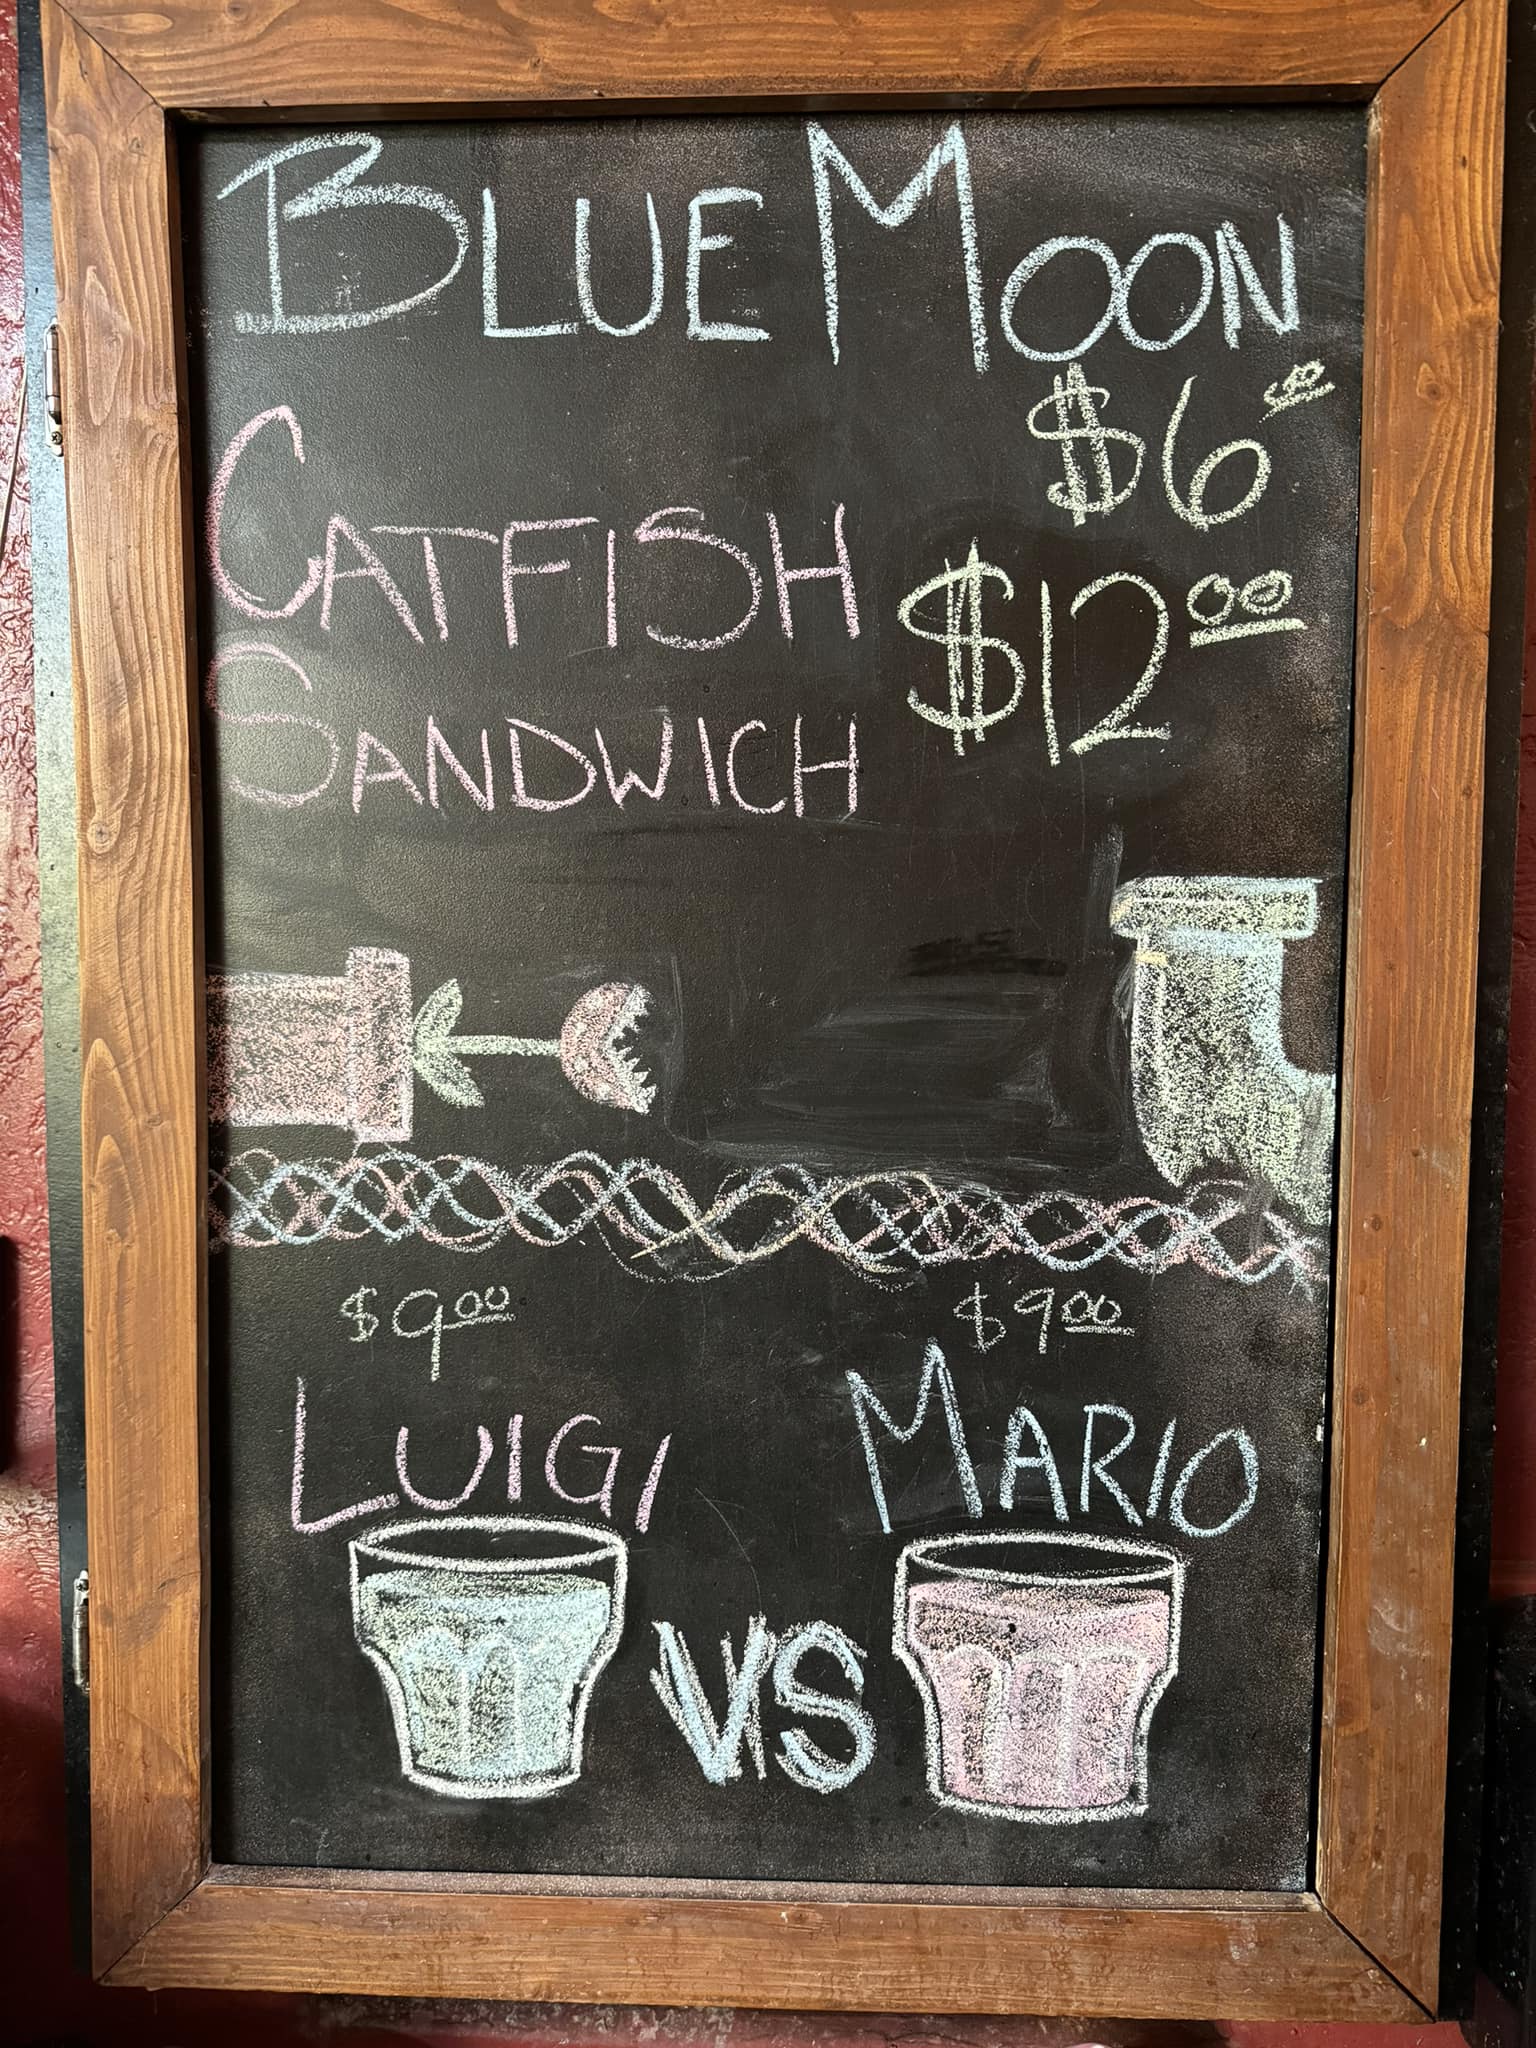 BLUE MOON
$6 00
CATFISH
SANDWICH
$12 00
$9 00
$9 00
LUIGI
MARIO
VS